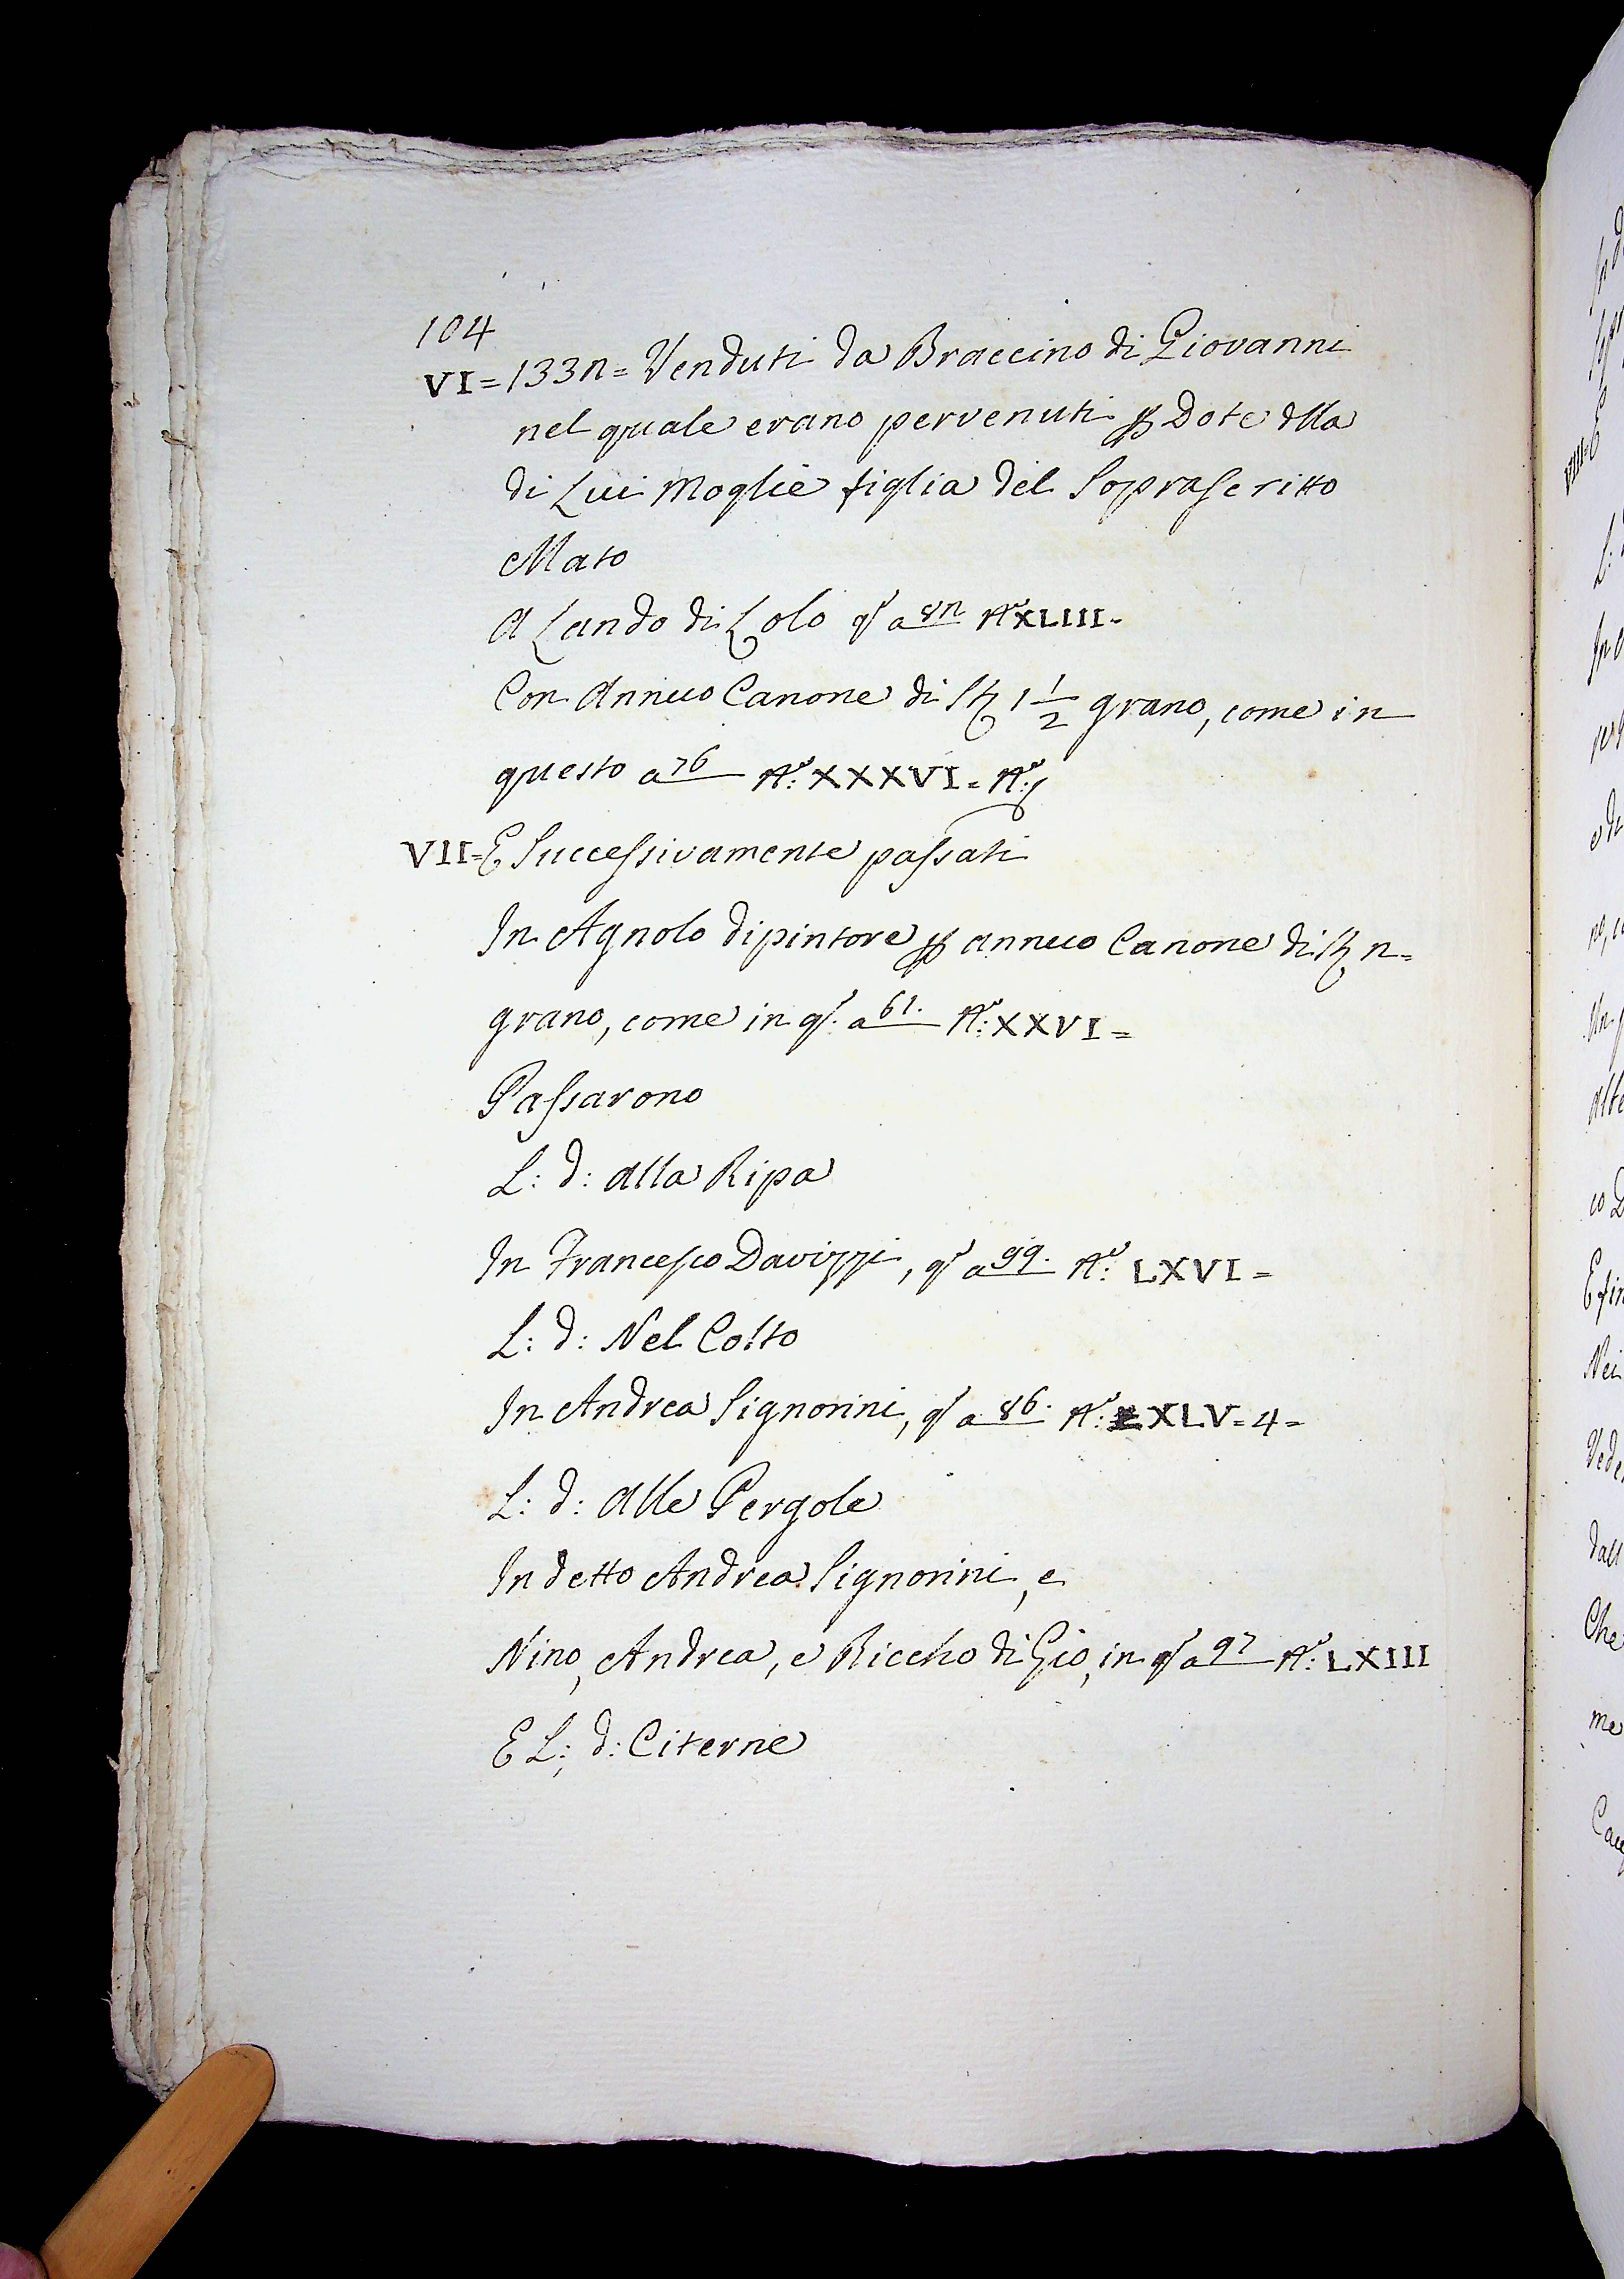 104
VI = 133n = Venduti da Braccino di Giovanni
nel quale erano pervenuti ꝑ Dote dlla
di Lui Moglie figlia del Soprascritto
Mato
A Lando di Lolo qſ a 8n Nº XLIII -
Con Annuo Canone di St 1 1/2 grano, come in
questo a 76 Nº: XXXVI = Nº:
VII = E Successivamente passati
In Agnolo dipintore ꝑ annuo Canone di St n =
grano, come in qſ: a 61. Nº: XXVI =
Passarono
L: d: alla Ripa
In Francesco Davizzi, qſ a 99. Nº: LXVI =
L: d: Nel Colto
In Andrea Signorini, qſ a 86. Nº: XLV = 4 =
L: d: alle Pergole
In detto Andrea Signorini, e
Nino, Andrea, e Riccho di Gio, in qſ a 97 Nº: LXIII
E L: d: Citerne